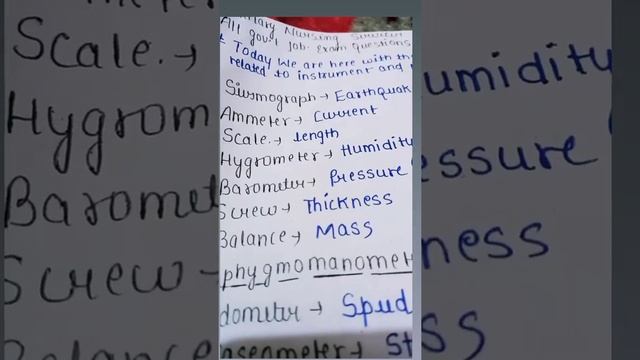 Nursing
All gov't job. exam questions
Today We are here with th
related to instrument and
Sismograph → Earthquak
Ammeter → Current
Scale. → length
Hygrometer → Humiditu
Barometer → Pressure
Screw → Thickness
Balance → Mass
phygmomanomet
dometer → Spud
asenmeter → St
Scale. →
Hygrom
Baromet
Screw -
umidity
essure
ness
ss